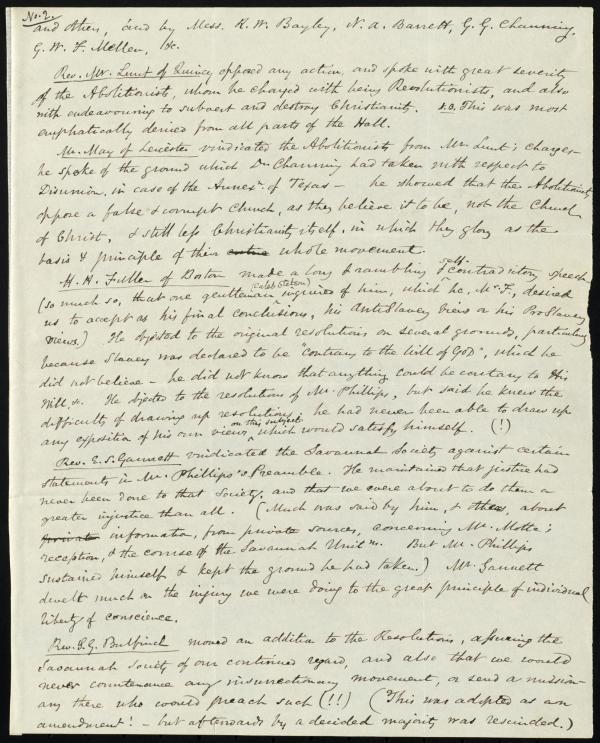 No. 2.
and others, and by Mess. R. W. Bayley, N. A. Barrett, G. G. Channing,
G. W. F. Mellen, &c.
Rev. Mr. Lunt of Quincy opposed any action, and spoke with great severity
of the Abolitionists, whom he charged with being Revolutionists, and also
with endeavouring to subvert and destroy Christianity. N.B. This was most
emphatically denied from all parts of the Hall.
Mr. May of Leicester vindicated the Abolitionists from Mr. Lunt's charges—
he spoke of the ground which Dr. Channing had taken with respect to
Disunion, in case of the Annexn. of Texas — he showed that the Abolitionists
oppose a false & corrupt Church, as they believe it to be, not the Church
of Christ, & still less Christianity itself, in which they glory as the
basis & principle of their whole movement.
H. H. Fuller of Boston made a long & rambling & self-contradictory speech
(so much so, that one gentleman (Caleb Stetson) inquired of him, which he, Mr. F., desired
us to accept as his final conclusions, his AntiSlavery views or his ProSlavery
views.) He objected to the original resolutions on several grounds, particularly
because Slavery was declared to be "contrary to the will of God", which he
did not believe — he did not know that anything could be contrary to His
Will, &c. He objected to the resolutions of Mr. Phillips, but said he knew the
difficulty of drawing up resolutions on this subject; he had never been able to draw up
any exposition of his own views, which would satisfy himself. (!)
Rev. E. S. Gannett vindicated the Savannah Society against certain
statements in Mr. Phillips's Preamble. He maintained that justice had
never been done to that Society, and that we were about to do them a
greater injustice than all. (Much was said by him, & others, about
private information, from private sources, concerning Mr. Motte's
reception, & the course of the Savannah Unitns. But Mr. Phillips
sustained himself & kept the ground he had taken.) Mr. Gannett
dwelt much on the injury we were doing to the great principle of individual
liberty of conscience.
Rev. S. G. Bulfinch moved an addition to the Resolutions, assuring the
Savannah Society of our continued regard, and also that we would
never countenance any insurrectionary movement, or send a mission-
ary there who would preach such (!!) (This was adopted as an
amendment! — but afterwards by a decided majority was rescinded.)